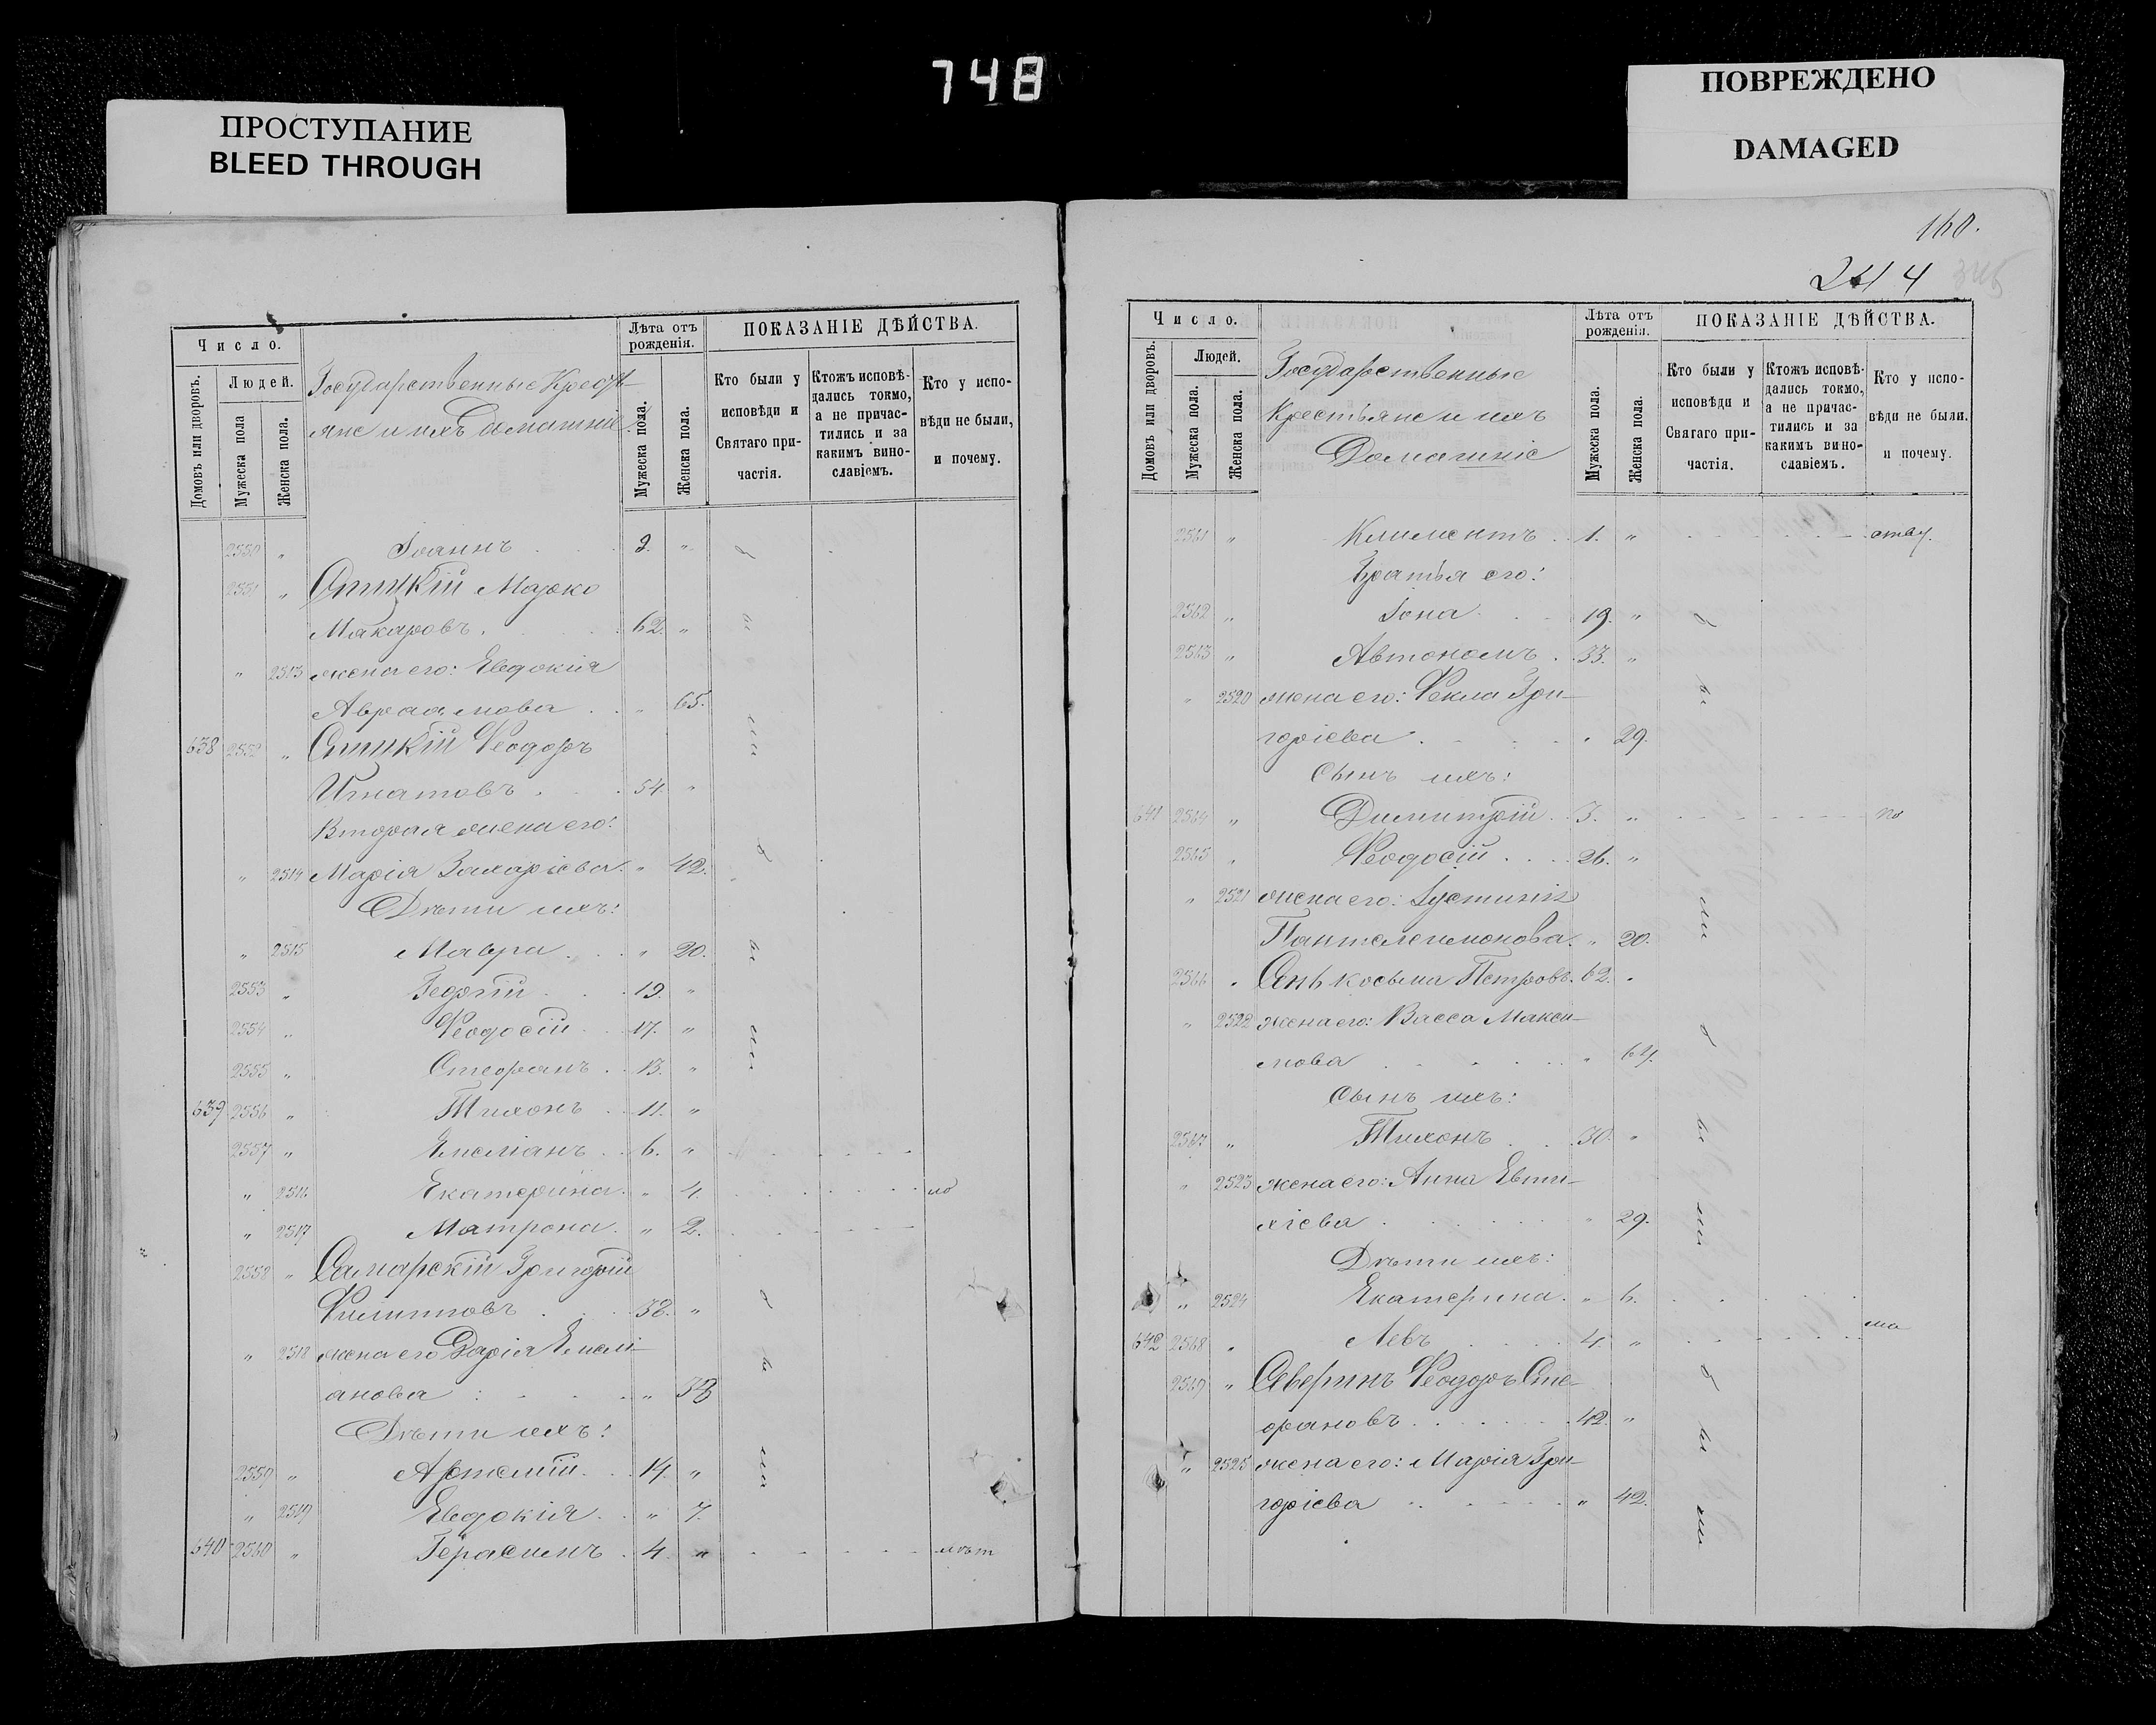 748
ПРОСТУПАНИЕ
BLEED THROUGH
ПОВРЕЖДЕНО
DAMAGED
Число.
Людей.
Домовъ или дворовъ.
Мужеска пола
Женска пола.
Государственные Кресть-
яне и ихъ Домашніе
Лѣта отъ
рожденія.
Мужеска пола.
Женска пола.
ПОКАЗАНІЕ ДѢЙСТВА.
Кто были у
исповѣди и
Святаго при-
частія.
Ктожъ исповѣ-
дались токмо,
а не причас-
тились и за
какимъ вино-
славіемъ.
Кто у испо-
вѣди не были,
и почему.
2550 " Іоаннъ "
2551 " Марко
Макаровъ 62. "
" 2513 жена его: Евдокія
Авраамова " 65.
638 2552 " Феодоръ
Игнатовъ 54 "
Вторая жена его:
" 2514 Марія Захаріева " 42.
Дѣти ихъ:
" 2515 Мавра " 20.
2553 " Георгій 19. "
2554 " Феодосій 17. "
2555 " Стефанъ 13. "
639 2556 " Тихонъ 11. "
2557 " Емеліанъ 6. "
" 2516 Екатерина " 4.
" 2517 Матрона " 2.
2558 " Самарскій Григорій
Филипповъ 38. "
" 2518 жена его Дарія Емелі-
анова " 38
Дѣти ихъ:
2559 " Артемій 14. "
" 2519 Евдокія " 7.
640 2560 " Герасимъ 4. " лѣт
160.
244
345
Число.
Людей.
Домовъ или дворовъ.
Мужеска пола.
Женска пола.
Государственные
Крестьяне и ихъ
Домашніе
Лѣта отъ
рожденія.
Мужеска пола.
Женска пола.
ПОКАЗАНІЕ ДѢЙСТВА.
Кто были у
исповѣди и
Святаго при-
частія.
Ктожъ исповѣ-
дались токмо,
а не причас-
тились и за
какимъ вино-
славіемъ.
Кто у испо-
вѣди не были.
и почему.
2561 " Климентъ 1. "
Братья его:
2562 " Іона 19. "
2563 " Автономъ 33. "
" 2520 жена его: Фекла Гри-
горіева " 29.
Сынъ ихъ:
641 2564 " Димитрій 3. " по
2565 " Феодосій 26. "
" 2521 жена его: Іустинія
Пантелеимонова " 20.
2566 " Косьма Петровъ 62. "
" 2522 жена его: Васса Макси-
мова " 64.
Сынъ ихъ:
2567 " Тихонъ 30. "
" 2523 жена его: Анна Евти-
хіева " 29.
Дѣти ихъ:
" 2524 Екатерина " 6.
642 2568 " Левъ 4. " ма
2569 " Северинъ Феодоръ Сте-
фановъ 42. "
" 2525 жена его: Марія Гри-
горіева " 42.